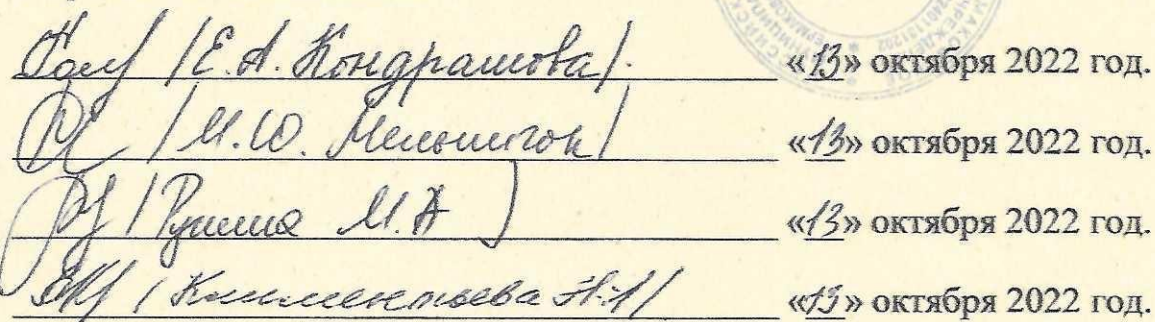 /Е.А. Кондрашова/. «13» октября 2022 год.
/М.Ю. Мельничок/ «13» октября 2022 год.
/ М.А «13» октября 2022 год.
/Климентьева Н.А/ «13» октября 2022 год.